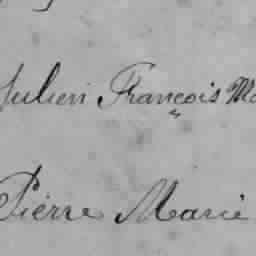 Julien François
Pierre Marie